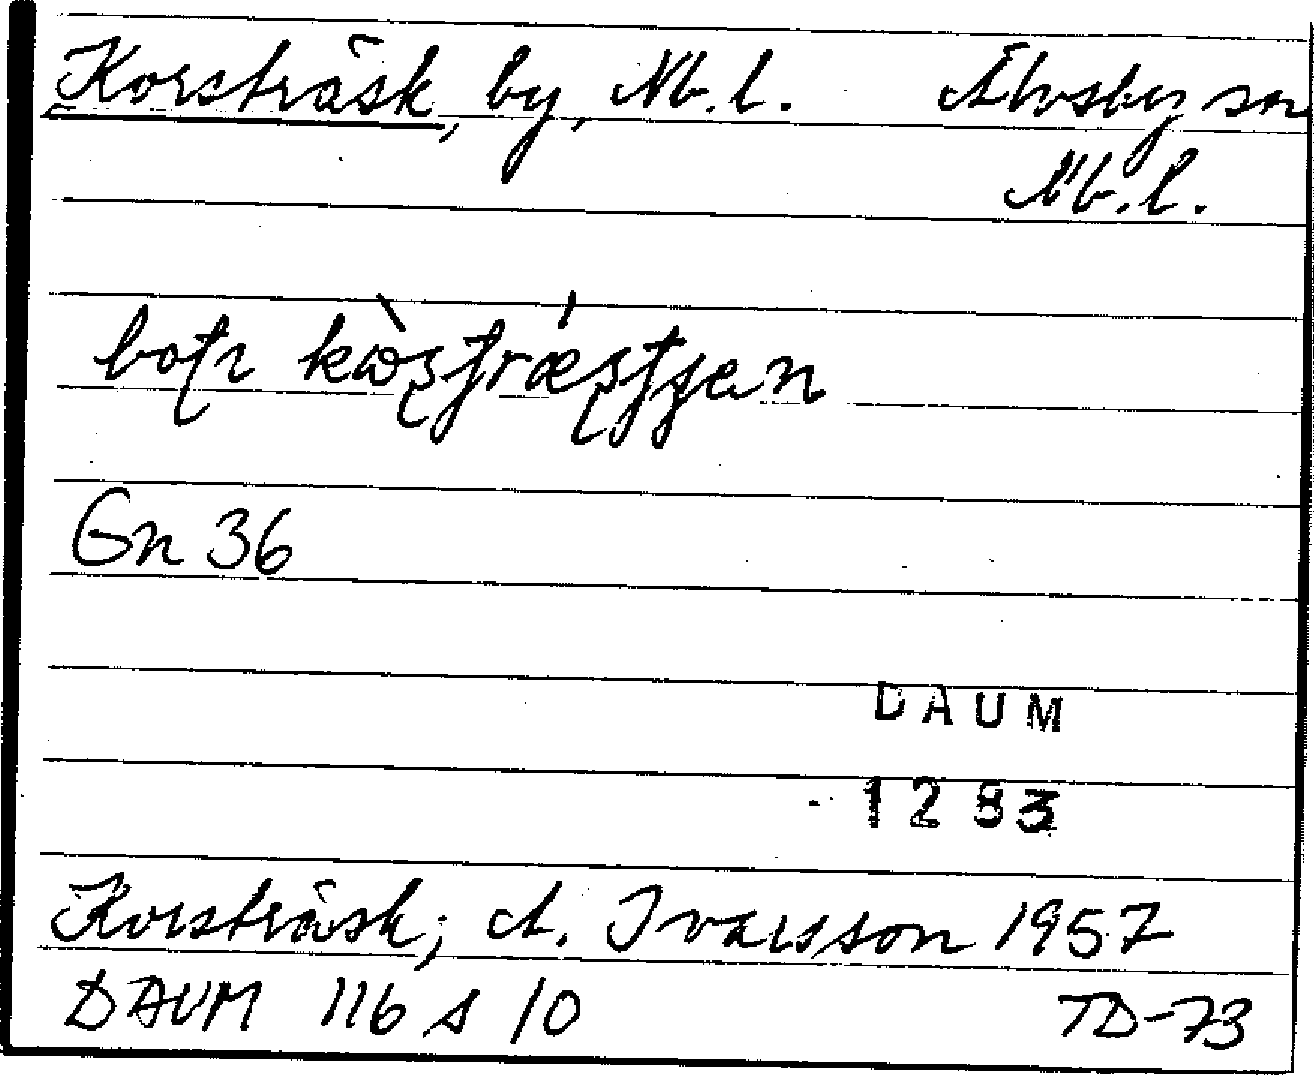 Korsträsk, by, Nb.l. Älvsby sn
Nb.l.
Gn 36
DAUM
1283
Korsträsk; A. Ivarsson 1957
DAUM 116 s 10 TD-73